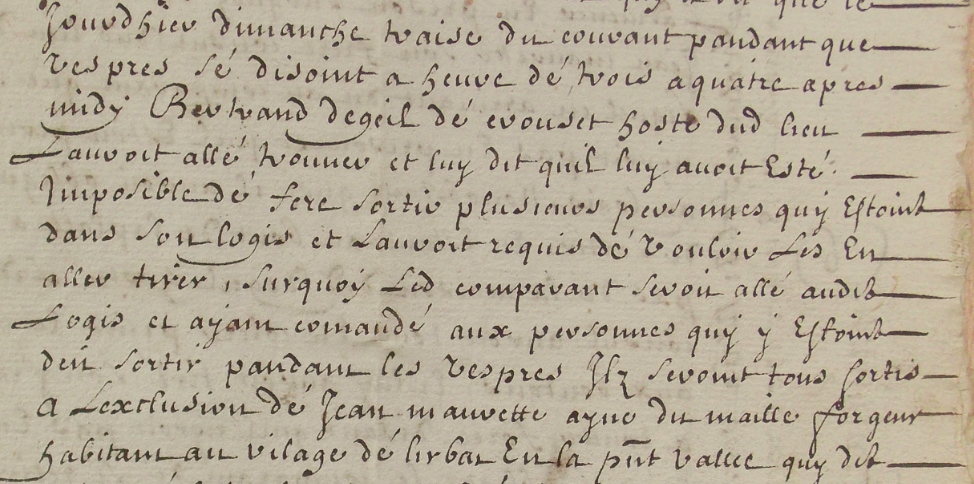 que le
Jourdhier dimanche traise du courant pandant que
Vespres sé disoint a heure dé trois aquatre apres
midy Bertrand degeil dé crouset hoste dud lieu
Lauroit allé trouuer et luy dit quil luy auoit Esté
Imposible dé fere sortir plusieurs personnes quy Estoint
dans son logis et Lauroit requis dé Vouloir Les En
aller tirer, surquoy Led comparant seroit allé audit
Logis et ayant comandé aux personnes quy y Estoint
den sortir pandant les Vespres Ilz seroint tous sortis
A Lexclusion dé Jean maurette ayne du maille forgeur
habitant au vilage dé lirbat En la pnt Vallee quy dit